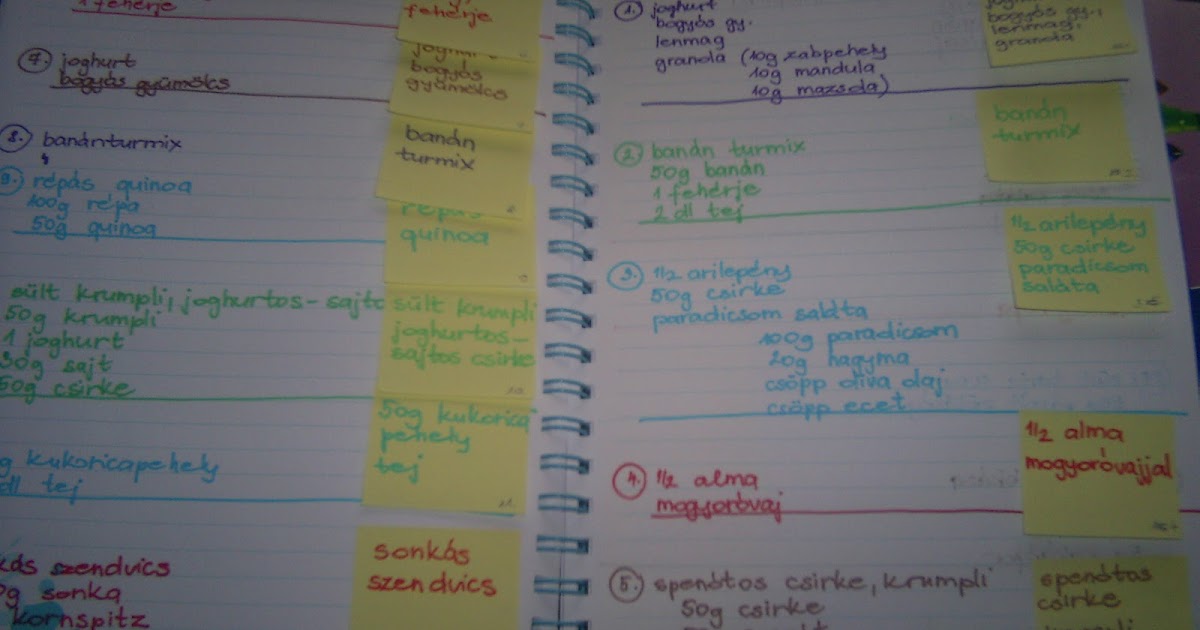 1 fehérje
fehérje
7. joghurt
bogyós gyümölcs
joghurt
bogyós
gyümölcs
8. banánturmix
banán
turmix
9. répás quinoa
100g répa
50g quinoa
répás
quinoa
sült krumpli, joghurtos-sajto
50g krumpli
1 joghurt
30g sajt
50g csirke
sült krumpli
joghurtos-
sajtos csirke
10.
g kukoricapehely
dl tej
50g kukorica
pehely
tej
szendvics
g sonka
kornspitz
sonkás
szendvics
1. joghurt
bogyós gy.
lenmag
granola (10g zabpehely
10g mandula
10g mazsola)
bogyós gy.,
lenmag,
granola
2. banán turmix
50g banán
1 fehérje
2 dl tej
banán
turmix
3. 1/2 arilepény
50g csirke
paradicsom saláta
100g paradicsom
20g hagyma
csöpp oliva olaj
csöpp ecet
1/2 arilepény
50g csirke
paradicsom
saláta
4. 1/2 alma
mogyoróvaj
1/2 alma
mogyoróvajjal
5. spenótos csirke, krumpli
50g csirke
spenótos
csirke